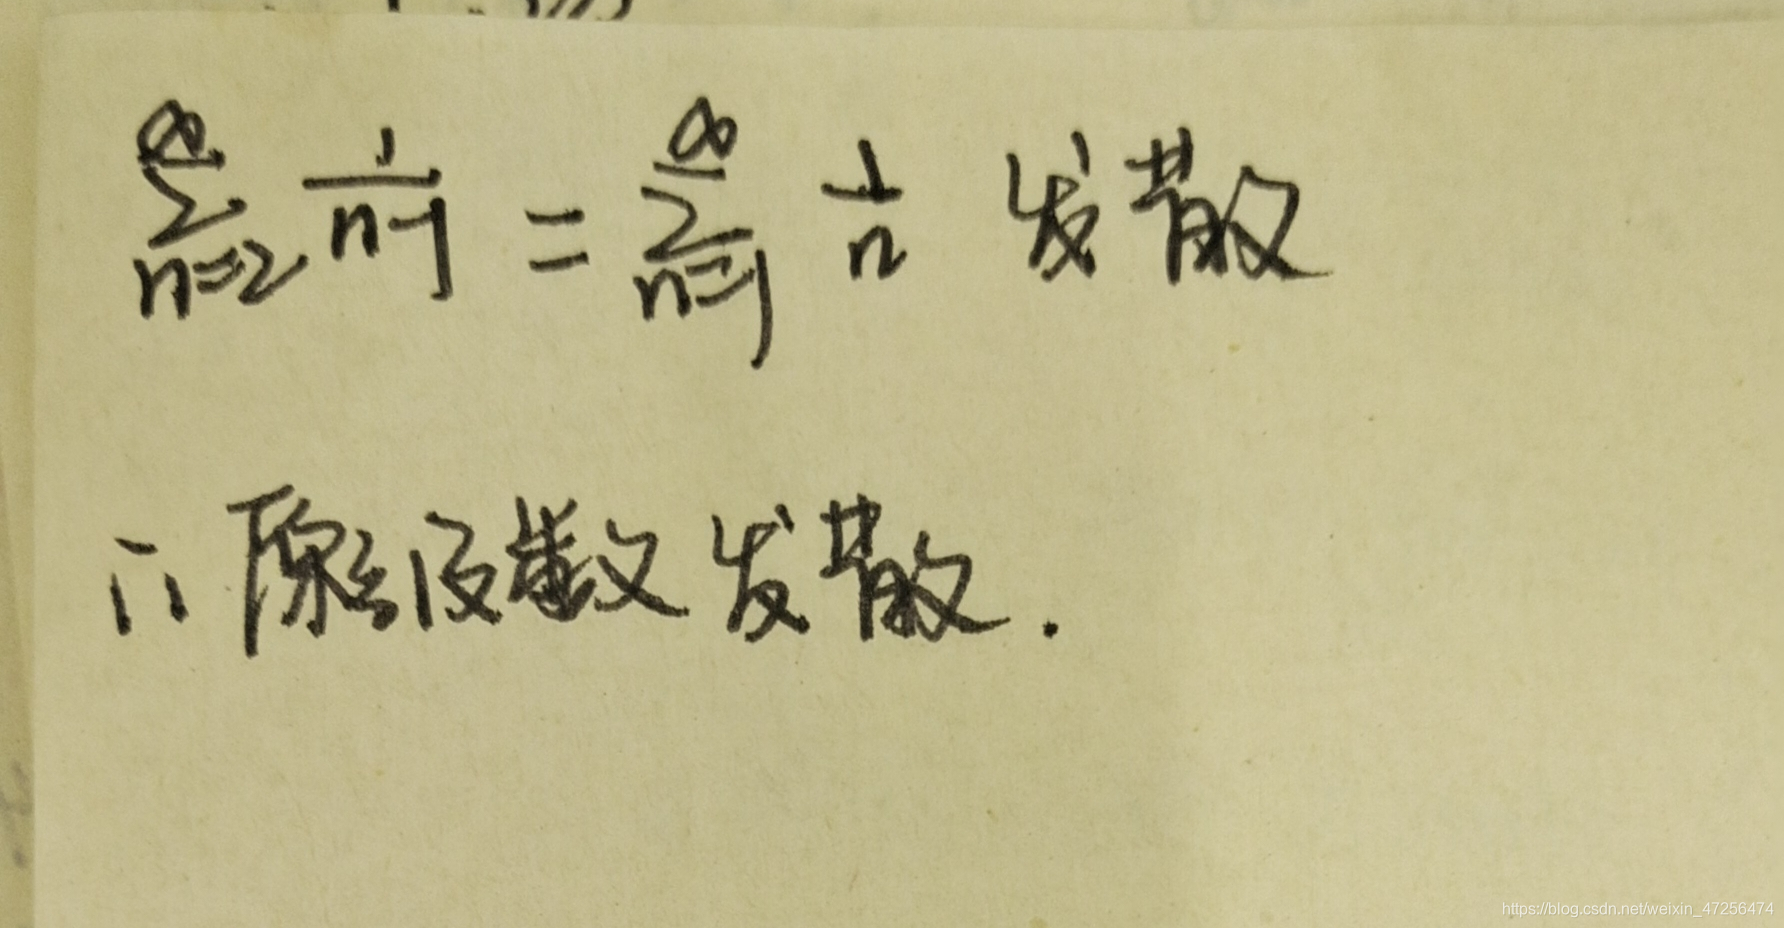 ∞ ∑ n=2 1/(n-1) = ∞ ∑ n=1 1/n 发散
∴ 原级数发散.
https://blog.csdn.net/weixin_47256474